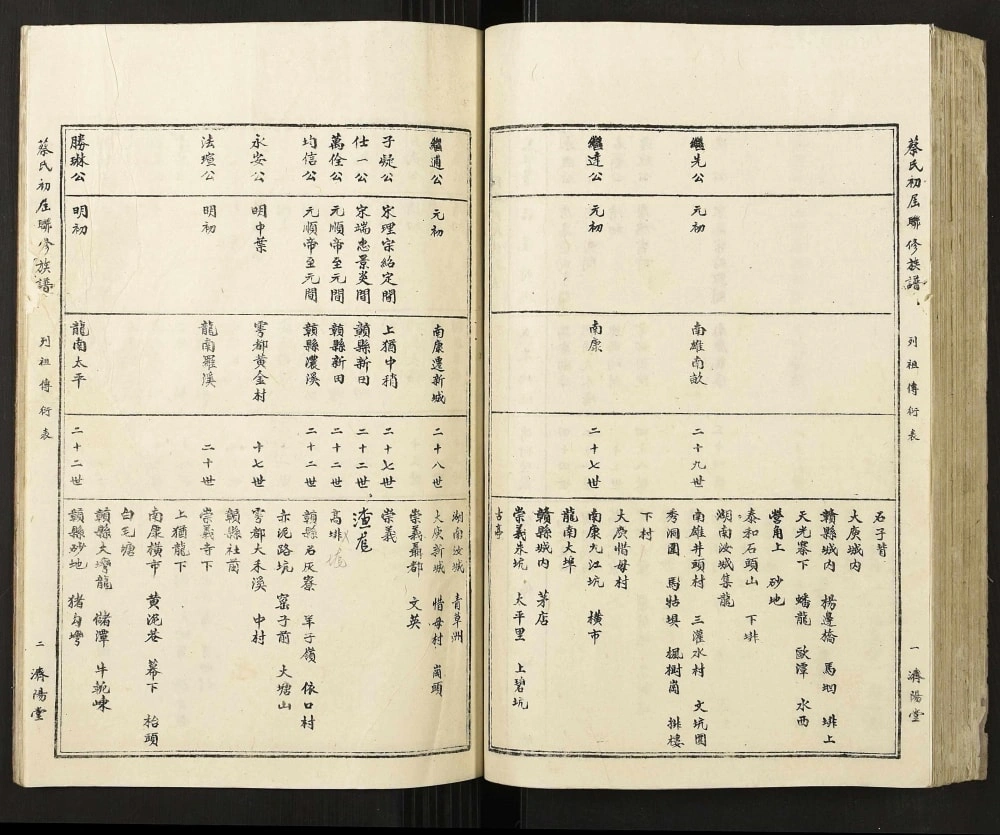 蔡氏初屆聯修族譜
列祖傳衍表
一 濟陽堂
石子背
大庚城內
贛縣城內 楊邊橋 馬垇 排上
天光寨下 蟠龍 歐潭 水西
營角上 砂地
泰和石頭山 下排
湖南汝城集龍
繼先公 元初 南雄南畝 二十九世 南雄井頭村 三灌水村 文坑圓
秀洞圓 馬牯垻 楓樹崗 排樓
下村
大庚惜母村
繼達公 元初 南康 二十七世 南康九江坑 橫市
龍南大埠
贛縣城內 茅店
崇義朱坑 太平里 上碧坑
古亭
湖南汝城 青草洲
繼通公 元初 南康遷新城 二十八世 大庚新城 惜母村 崗頭
崇義聶都 文英
子凝公 宋理宗紹定間 上猶中稍 二十七世 崇義
仕一公 宋端惠景炎間 贛縣新田 二十二世 渣尾
萬佺公 元順帝至元間 贛縣新田 二十二世 高排
均信公 元順帝至元間 贛縣濃溪 二十二世 贛縣石灰寮 羊子嶺 依口村
赤泥路坑 窯子前 大塘山
永安公 明中葉 雩都黃金村 十七世 雩都大禾溪 中村
贛縣社前
法壇公 明初 龍南羅溪 二十世 崇義寺下
上猶龍下
南康橫市 黃泥巷 幕下 枱頭
白毛塘
贛縣大灣龍 儲潭 牛軛崠
勝琳公 明初 龍南太平 二十二世 贛縣砂地 猪勾灣
蔡氏初屆聯修族譜
列祖傳衍表
二 濟陽堂